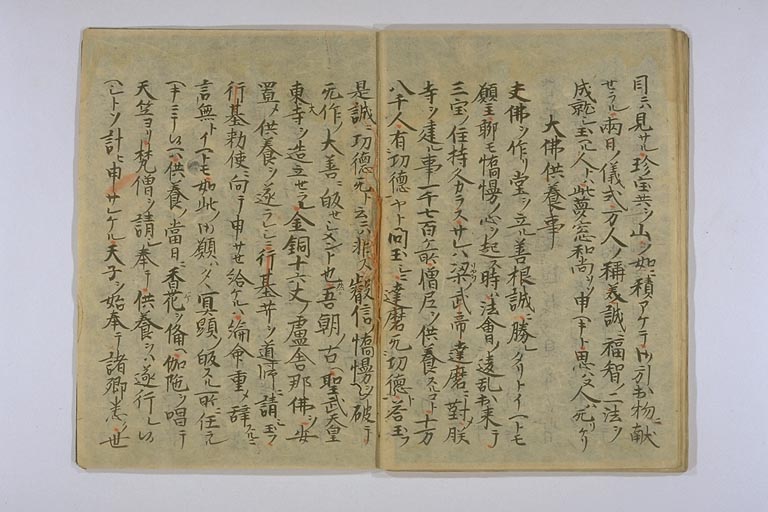 目ニ見サル珍宝共ヲ山ノ如ニ積アケテ御引出物ニ献
セラル両日ノ儀式万人ノ称美誠ニ福智ノ二法ヲ
成就シ玉ル人ト此夢窓和尚ヲ申ヘキト思ハヌ人ハ无リケリ
大佛供養事
夫佛ヲ作リ堂ヲ立ル善根誠ニ勝レタリトイヘトモ
願主聊モ憍慢ノ心ヲ起ス時ハ法會ノ違乱出来テ
三宝ノ住持久カラス サレハ梁ノ武帝達磨ニ對メ朕
寺ヲ建ル事一千七百ケ所僧尼ヲ供養スルコト十万
八千人有功徳ヤト問玉シニ達磨无功徳ト答玉フ
是誠ニ功徳无ト云ニハ非ス叡信憍慢ヲ破テ
无作ノ大善ニ皈セシメント也吾朝ノ古ヘ聖武天皇
東大寺ヲ造立セラレ金銅十六丈ノ盧舎那佛ヲ安
置メ供養ヲ遂ラレシニ行基井ヲ道師ニ請シ玉フ
行基勅使ニ向テ申サセ給ケルハ綸命重メ辞スルニ
言無トイヘトモ如此ノ御願ハタヽ冥顕ノ皈スル所ニ任ラル
ヘキニテコレハ供養ノ當日ニ香花ヲ備ヘ伽陀ヲ唱テ
天竺ヨリ梵僧ヲ請シ奉テ供養ヲハ遂行レ
ヘシトソ計ヒ申サレケル天子ヲ始奉テ諸卿悉ク世